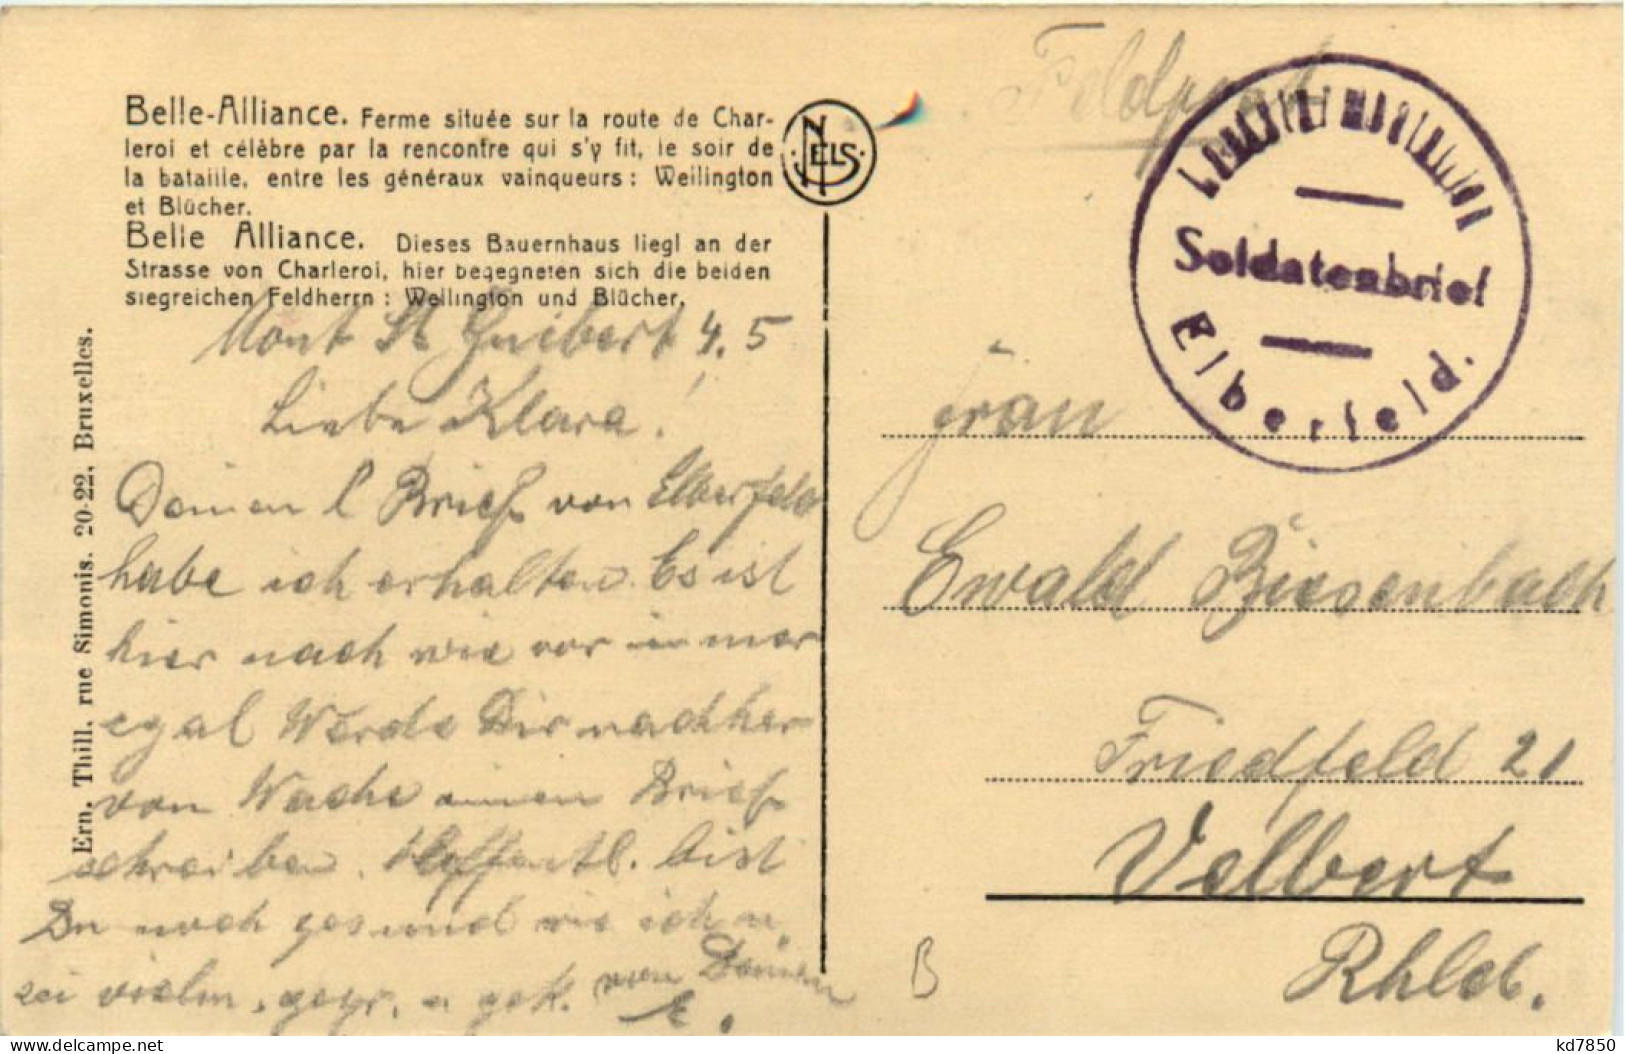 Feldpost
Belle-Alliance. Ferme située sur la route de Char-
leroi et célèbre par la rencontre qui s'y fit, le soir de
la bataille, entre les généraux vainqueurs : Wellington
et Blücher.
Belle Alliance. Dieses Bauernhaus liegt an der
Strasse von Charleroi, hier begegneten sich die beiden
siegreichen Feldherrn : Wellington und Blücher.
NELS
Ern. Thill. rue Simonis. 20-22. Bruxelles.
Mont St Guibert 4. 5
Liebe Klara!
Deinen l Brief von Elberfeld
habe ich erhalten. Es ist
hier nach wie vor immer
egal Werde Dir nachher
von Wache einen Brief
schreiben. Hoffentl. bist
Du noch gesund wie ich u.
sei vielm. gegr. u gek. von Deinem
E.
Soldatenbrief
Elberfeld.
Frau
Ewald Biesenbach
Friedfeld 21
Velbert
Rhld.
B
kd7850
© www.delcampe.net